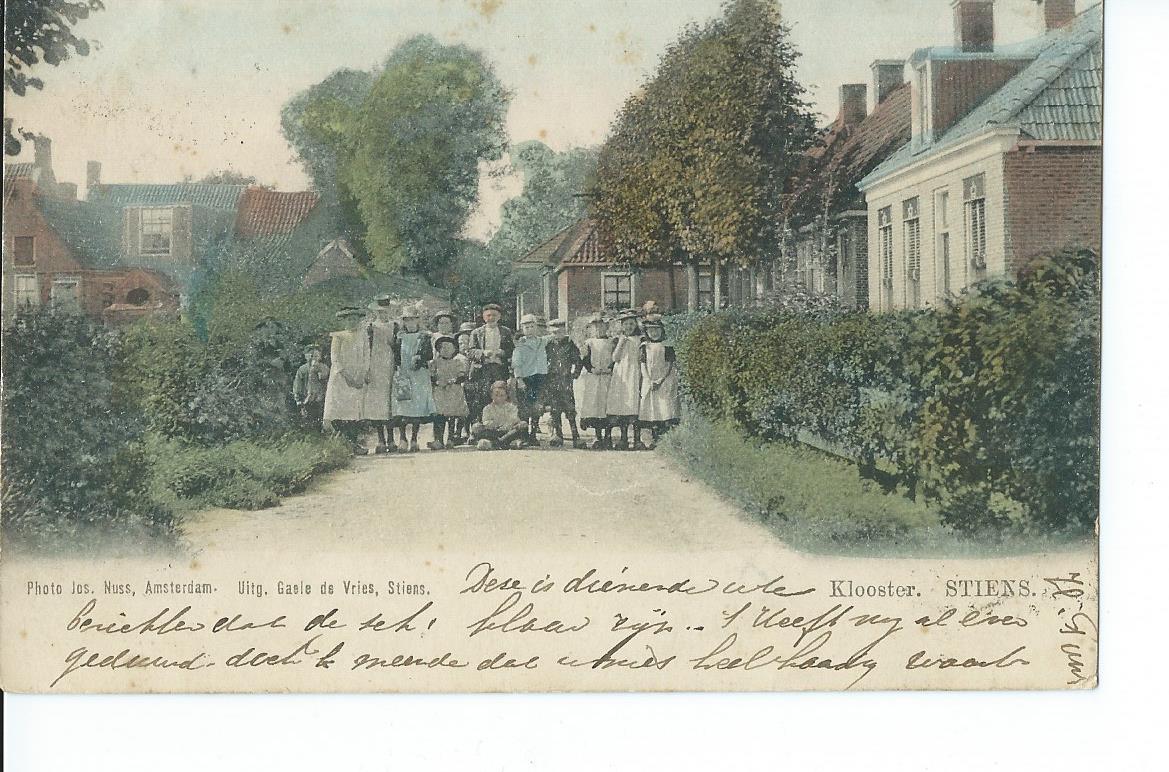 Photo Jos. Nuss, Amsterdam. Uitg. Gaele de Vries, Stiens.
Klooster. STIENS.
Dese is dienende ute
berichten dat de sch: klaar zijn.. 't Heeft nog al even
geduurd. doch ik meende dat u niet heel haastig waart